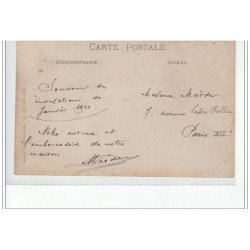 CARTE POSTALE
CORRESPONDANCE
ADRESSE
Souvenir des
inondations de
Janvier 1910
Notre avenue et
l'embarcadère de notre
maison
Maëder
Madame Maëder
7. avenue Ledru Rollin
Paris XII